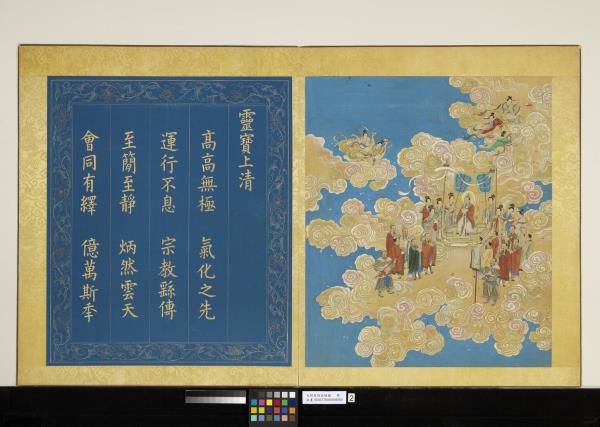 靈寶上清
髙髙無極　氣化之先
運行不息　宗教縣傳
至簡至静　炳然雲天
會同有繹　億萬斯秊
2